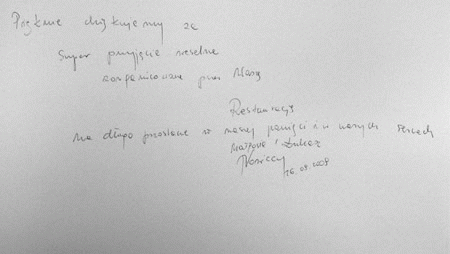 Pięknie dziękujemy za
Super przyjęcie weselne
zorganizowane przez Waszą
Restaurację
Na długo pozostanie w naszej pamięci i w naszych sercach
i Łukasz
26.09.2008